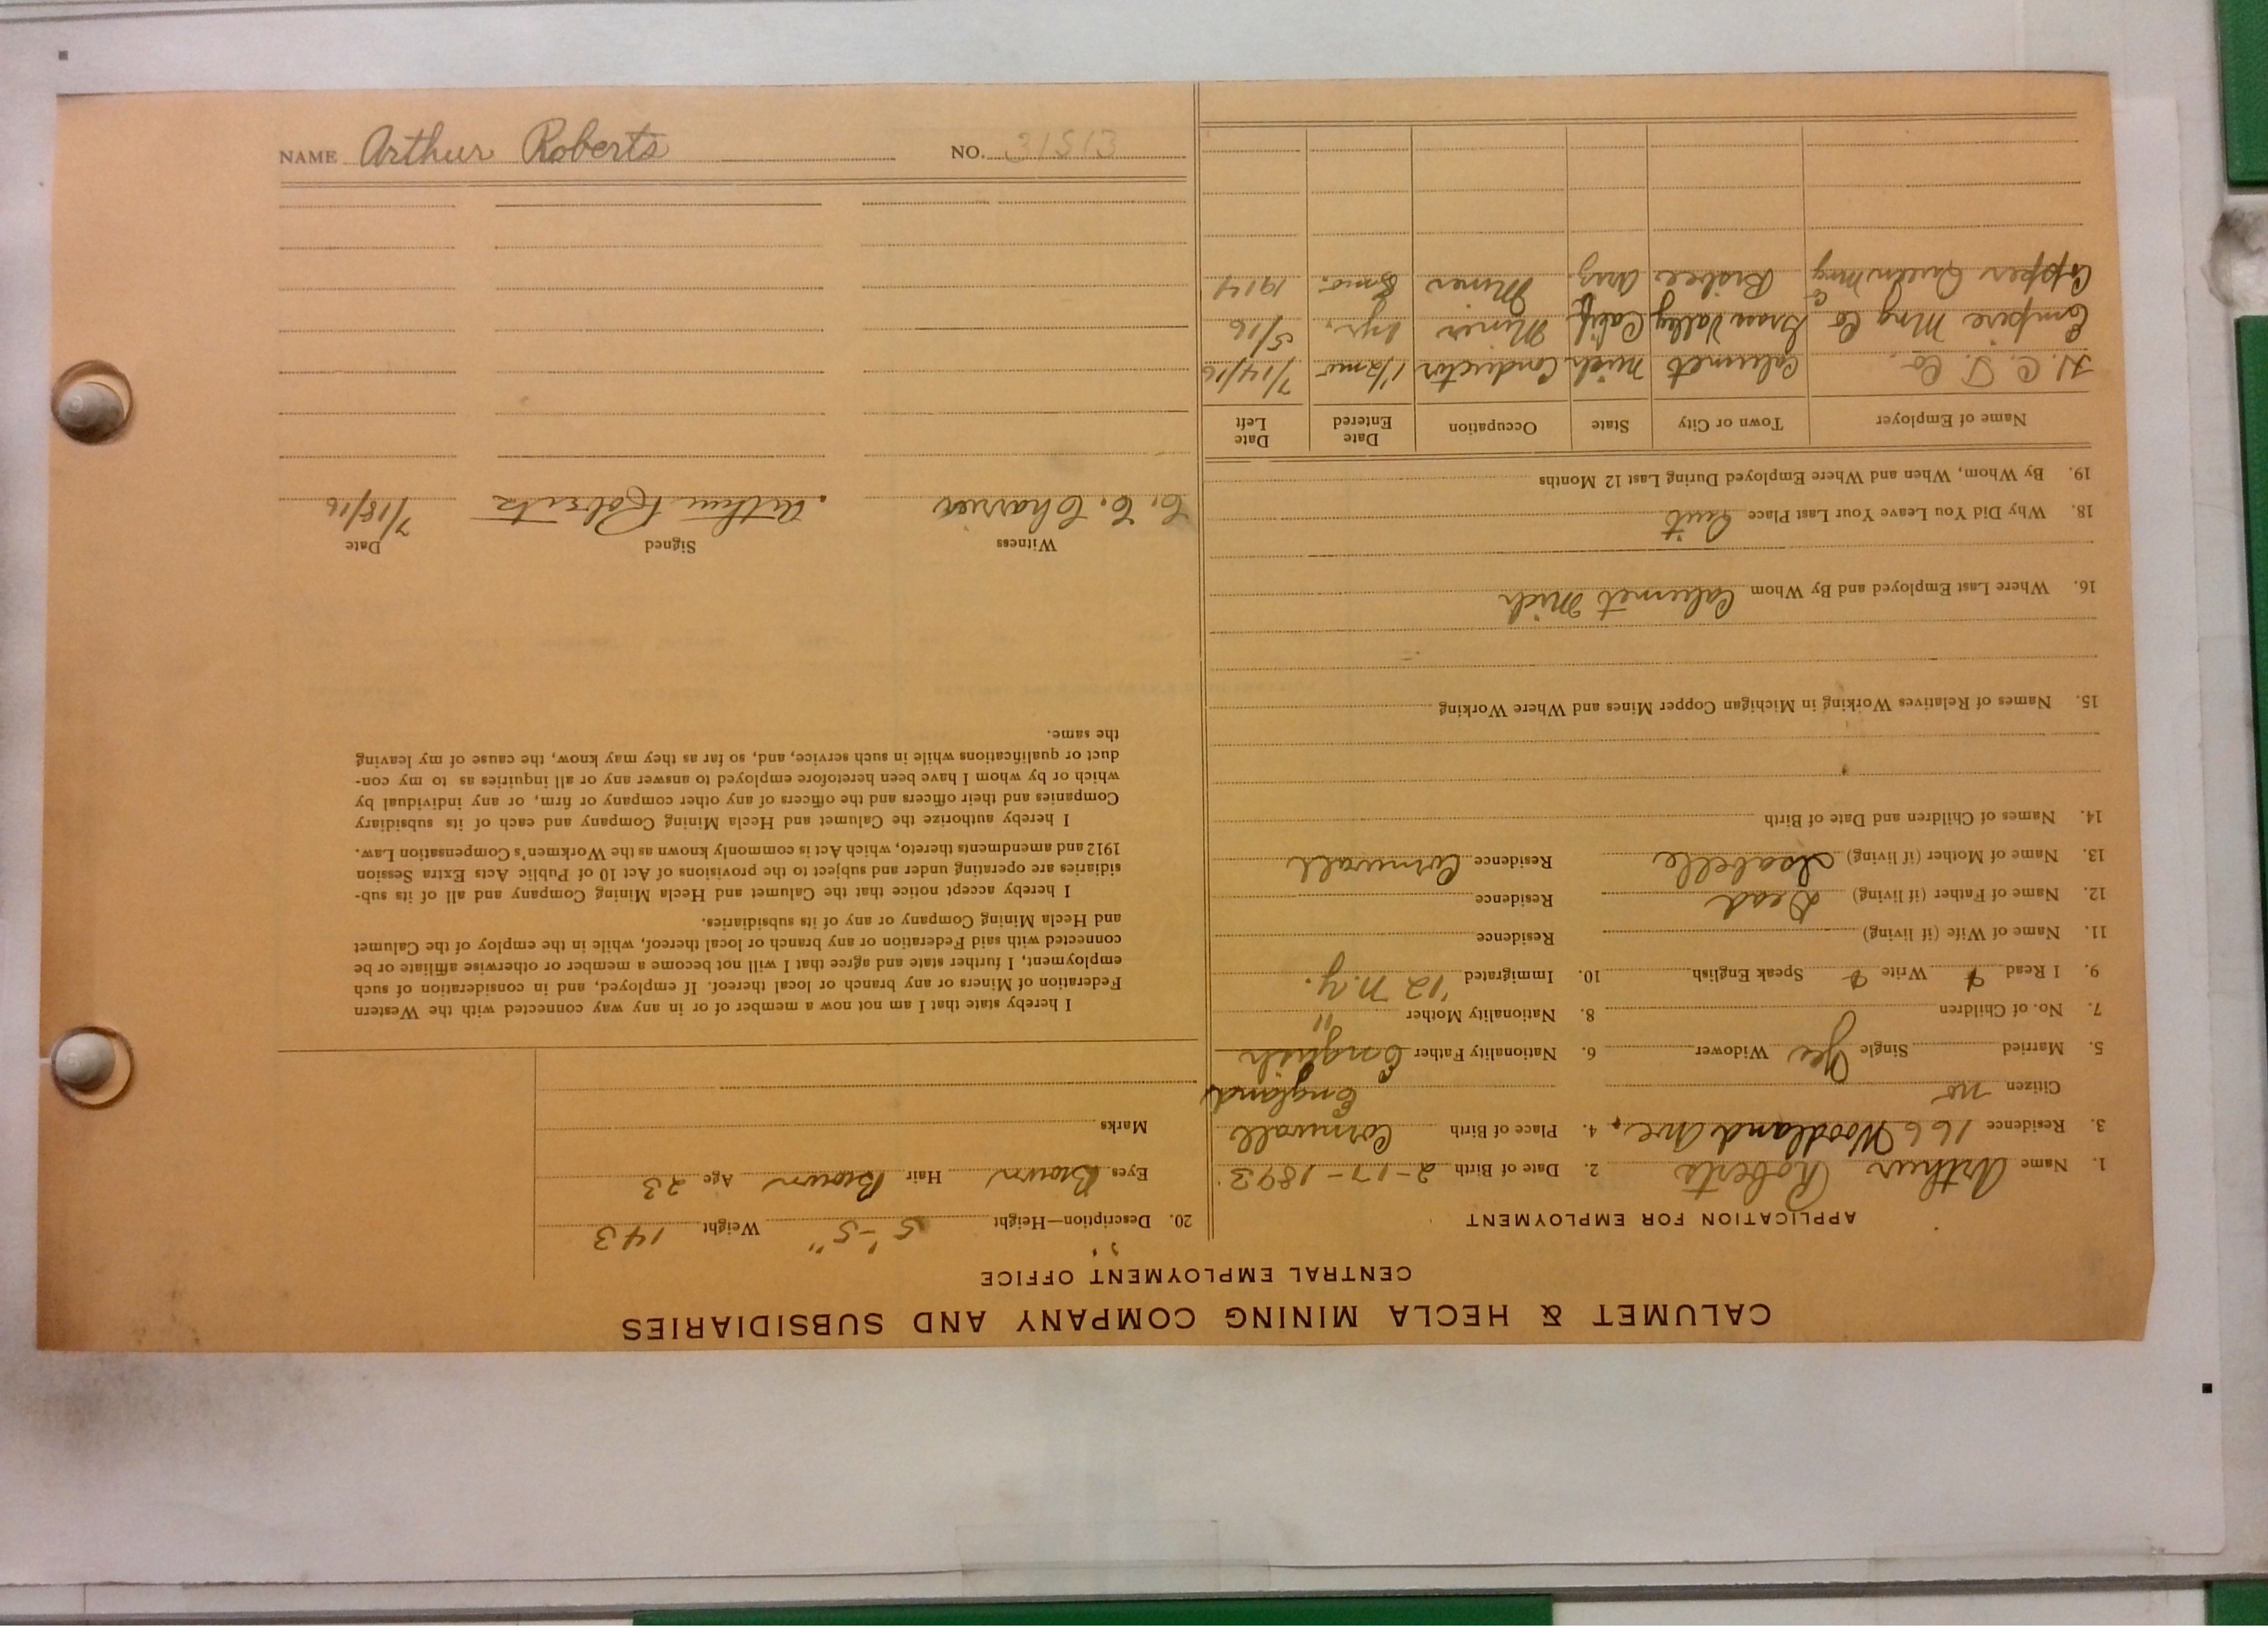 CALUMET & HECLA MINING COMPANY AND SUBSIDIARIES
CENTRAL EMPLOYMENT OFFICE
APPLICATION FOR EMPLOYMENT
1. Name Arthur Roberts 2. Date of Birth 2-17-1893
3. Residence 166 Woodland Ave, 4. Place of Birth Cornwall
Citizen no England
5. Married Single Yes Widower 6. Nationality Father English
7. No. of Children 8. Nationality Mother "
9. I Read Write Speak English 10. Immigrated '12 N.Y.
11. Name of Wife (if living) Residence
12. Name of Father (if living) Dead Residence
13. Name of Mother (if living) Isabelle Residence Cornwall
14. Names of Children and Date of Birth
15. Names of Relatives Working in Michigan Copper Mines and Where Working
16. Where Last Employed and By Whom Calumet Mich
18. Why Did You Leave Your Last Place Quit
19. By Whom, When and Where Employed During Last 12 Months
Name of Employer Town or City State Occupation Date Entered Date Left
H. C. T. Co. Calumet Mich Conductor 1/2 mo 7/14/16
Empire Mng Co Grass Valley Calif Miner 1 yr. 5/16
Copper Queen Mng Co Bisbee Ariz. Miner 8 mo. 1914
20. Description—Height 5'-5" Weight 143
Eyes Brown Hair Brown Age 23
Marks
I hereby state that I am not now a member of or in any way connected with the Western
Federation of Miners or any branch or local thereof. If employed, and in consideration of such
employment, I further state and agree that I will not become a member or otherwise affiliate or be
connected with said Federation or any branch or local thereof, while in the employ of the Calumet
and Hecla Mining Company or any of its subsidiaries.
I hereby accept notice that the Calumet and Hecla Mining Company and all of its sub-
sidiaries are operating under and subject to the provisions of Act 10 of Public Acts Extra Session
1912 and amendments thereto, which Act is commonly known as the Workmen's Compensation Law.
I hereby authorize the Calumet and Hecla Mining Company and each of its subsidiary
Companies and their officers and the officers of any other company or firm, or any individual by
which or by whom I have been heretofore employed to answer any or all inquiries as to my con-
duct or qualifications while in such service, and, so far as they may know, the cause of my leaving
the same.
Witness Signed Date
Arthur Roberts 7/18/16
NAME Arthur Roberts NO. 31513